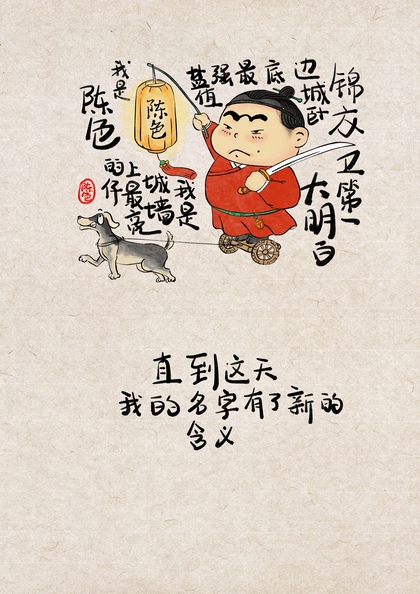 锦衣卫第一
大明白
边城卧
底
最
强
盐值
我是
城墙
上最亮
的仔
我是
陈色
陈色
陈色
直到这天
我的名字有了新的
含义